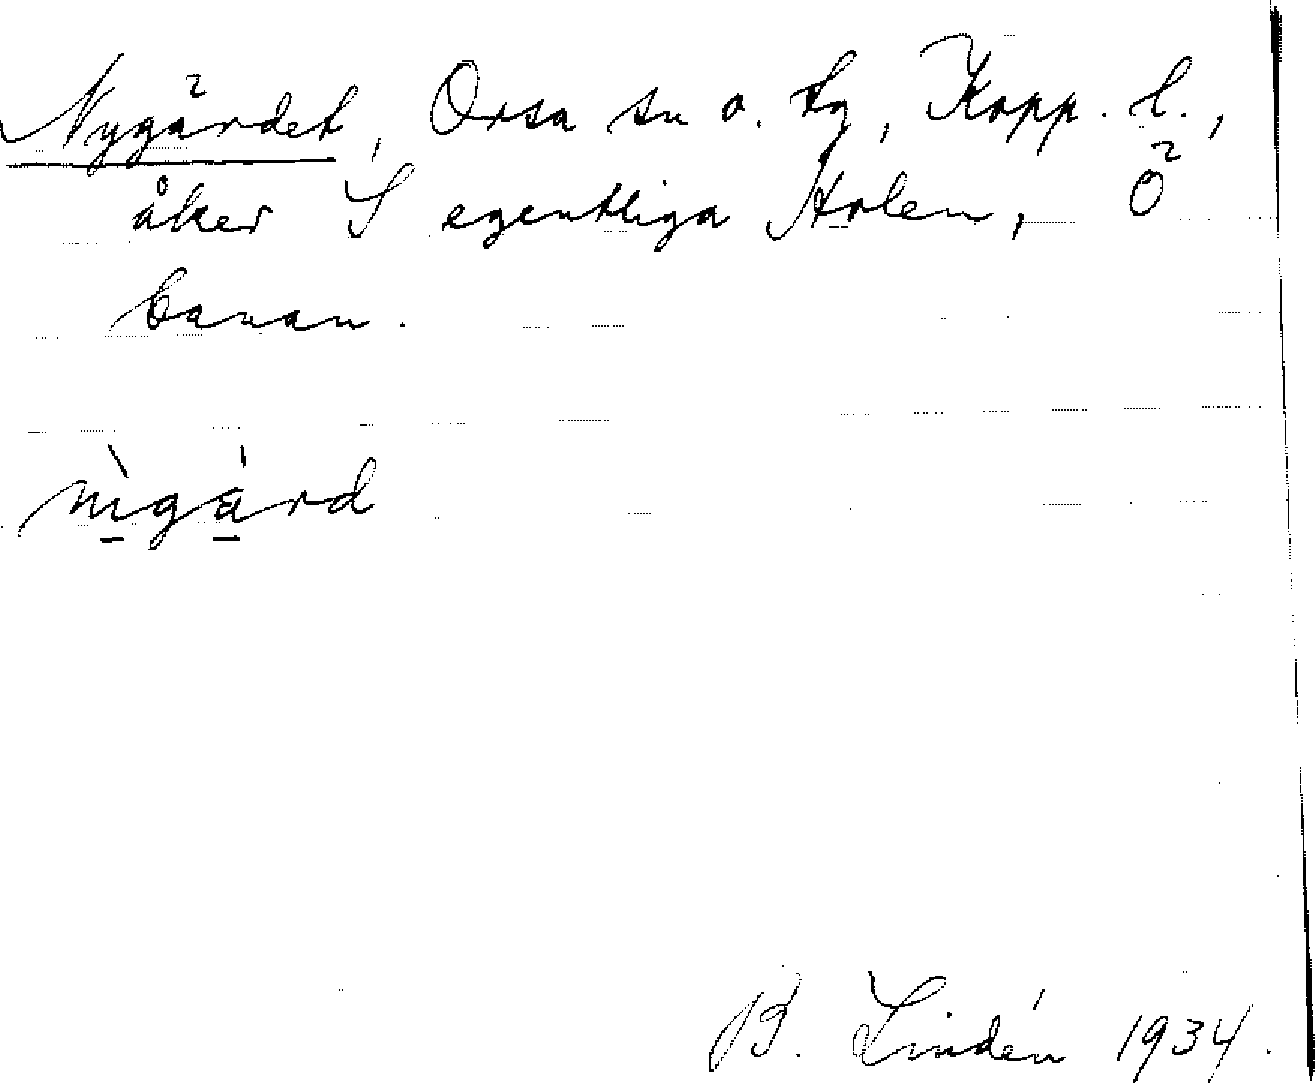 Nygärdet, Orsa sn o. tg, Kopp. l.,
åker S egentliga Holen, Ö
banan.
nìgä́rd
B. Lindén 1934.